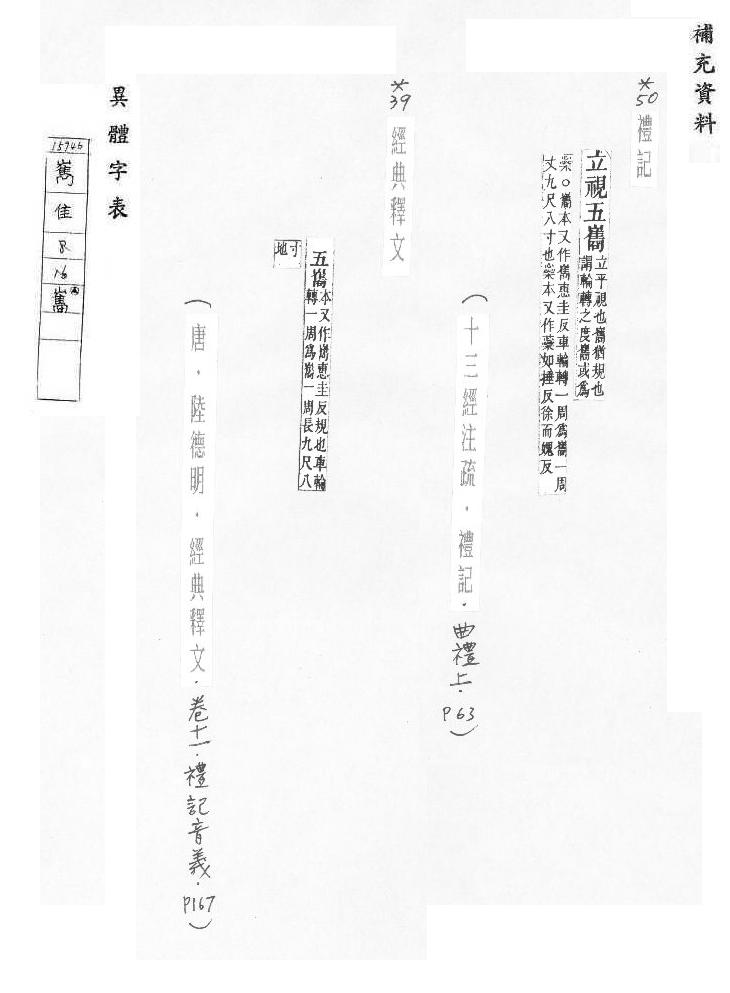 補充資料
*50 禮記
立視五巂 立平視也巂猶規也
謂輪轉之度巂或為
蘂○巂本又作嶲惠圭反車輪轉一周為巂一周
丈九尺八寸也蘂本又作蕊如捶反徐而媿反
(十三經注疏.禮記.曲禮上.P63)
*39 經典釋文
五巂 本又作嶲惠圭反規也車輪
轉一周為巂一周長九尺八
寸
地
(唐.陸德明.經典釋文.卷十一.禮記音義.P167)
異體字表
15946
隹
8
16
巂